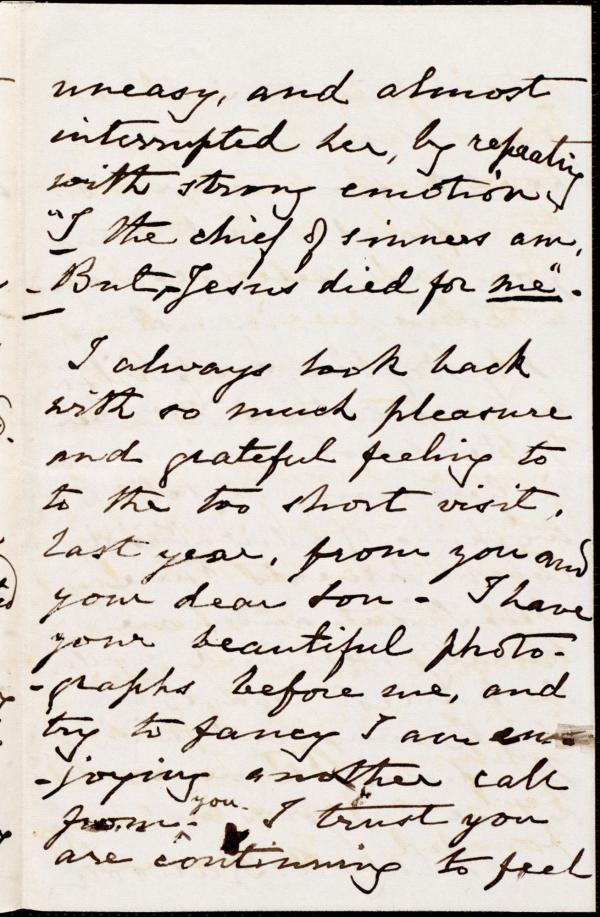 uneasy, and almost
interrupted her, by repeating
with strong emotion,
"I the chief of sinners am,
- But, Jesus died for me".
I always look back
with so much pleasure
and grateful feeling to
to the too short visit,
last year, from you and
your dear son - I have
your beautiful photo-
-graphs before me, and
try to fancy I am en-
-joying another call
from you. I trust you
are continuing to feel